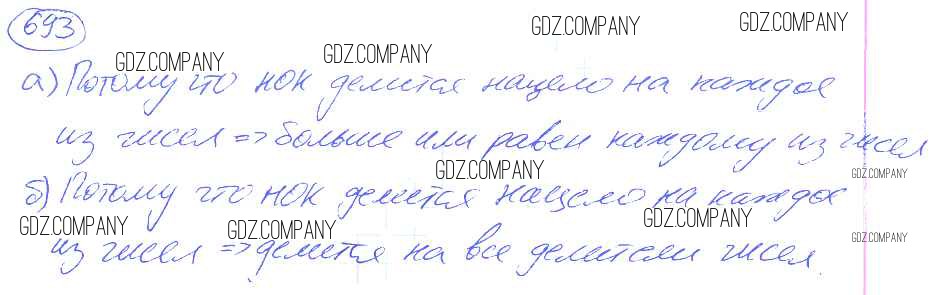 693
GDZ.COMPANY GDZ.COMPANY GDZ.COMPANY GDZ.COMPANY
а) Потому что НОК делится нацело на каждое
из чисел => больше или равен каждому из чисел
GDZ.COMPANY GDZ.COMPANY
б) Потому что НОК делится нацело на каждое
GDZ.COMPANY GDZ.COMPANY GDZ.COMPANY GDZ.COMPANY
из чисел => делится на все делители чисел.